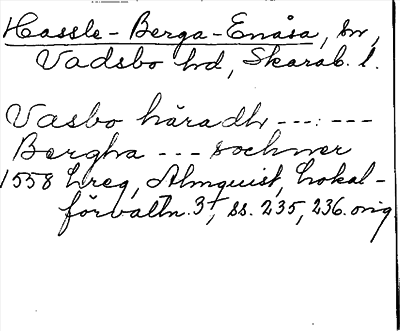 Hassle-Berga-Enåsa, sn,
Vadsbo hd, Skarab. l.
Vasbo häradh ---:---
Bergha --- sochner
1558 Lreg, Almquist, Lokal-
förvaltn. 3†, ss. 235, 236. orig